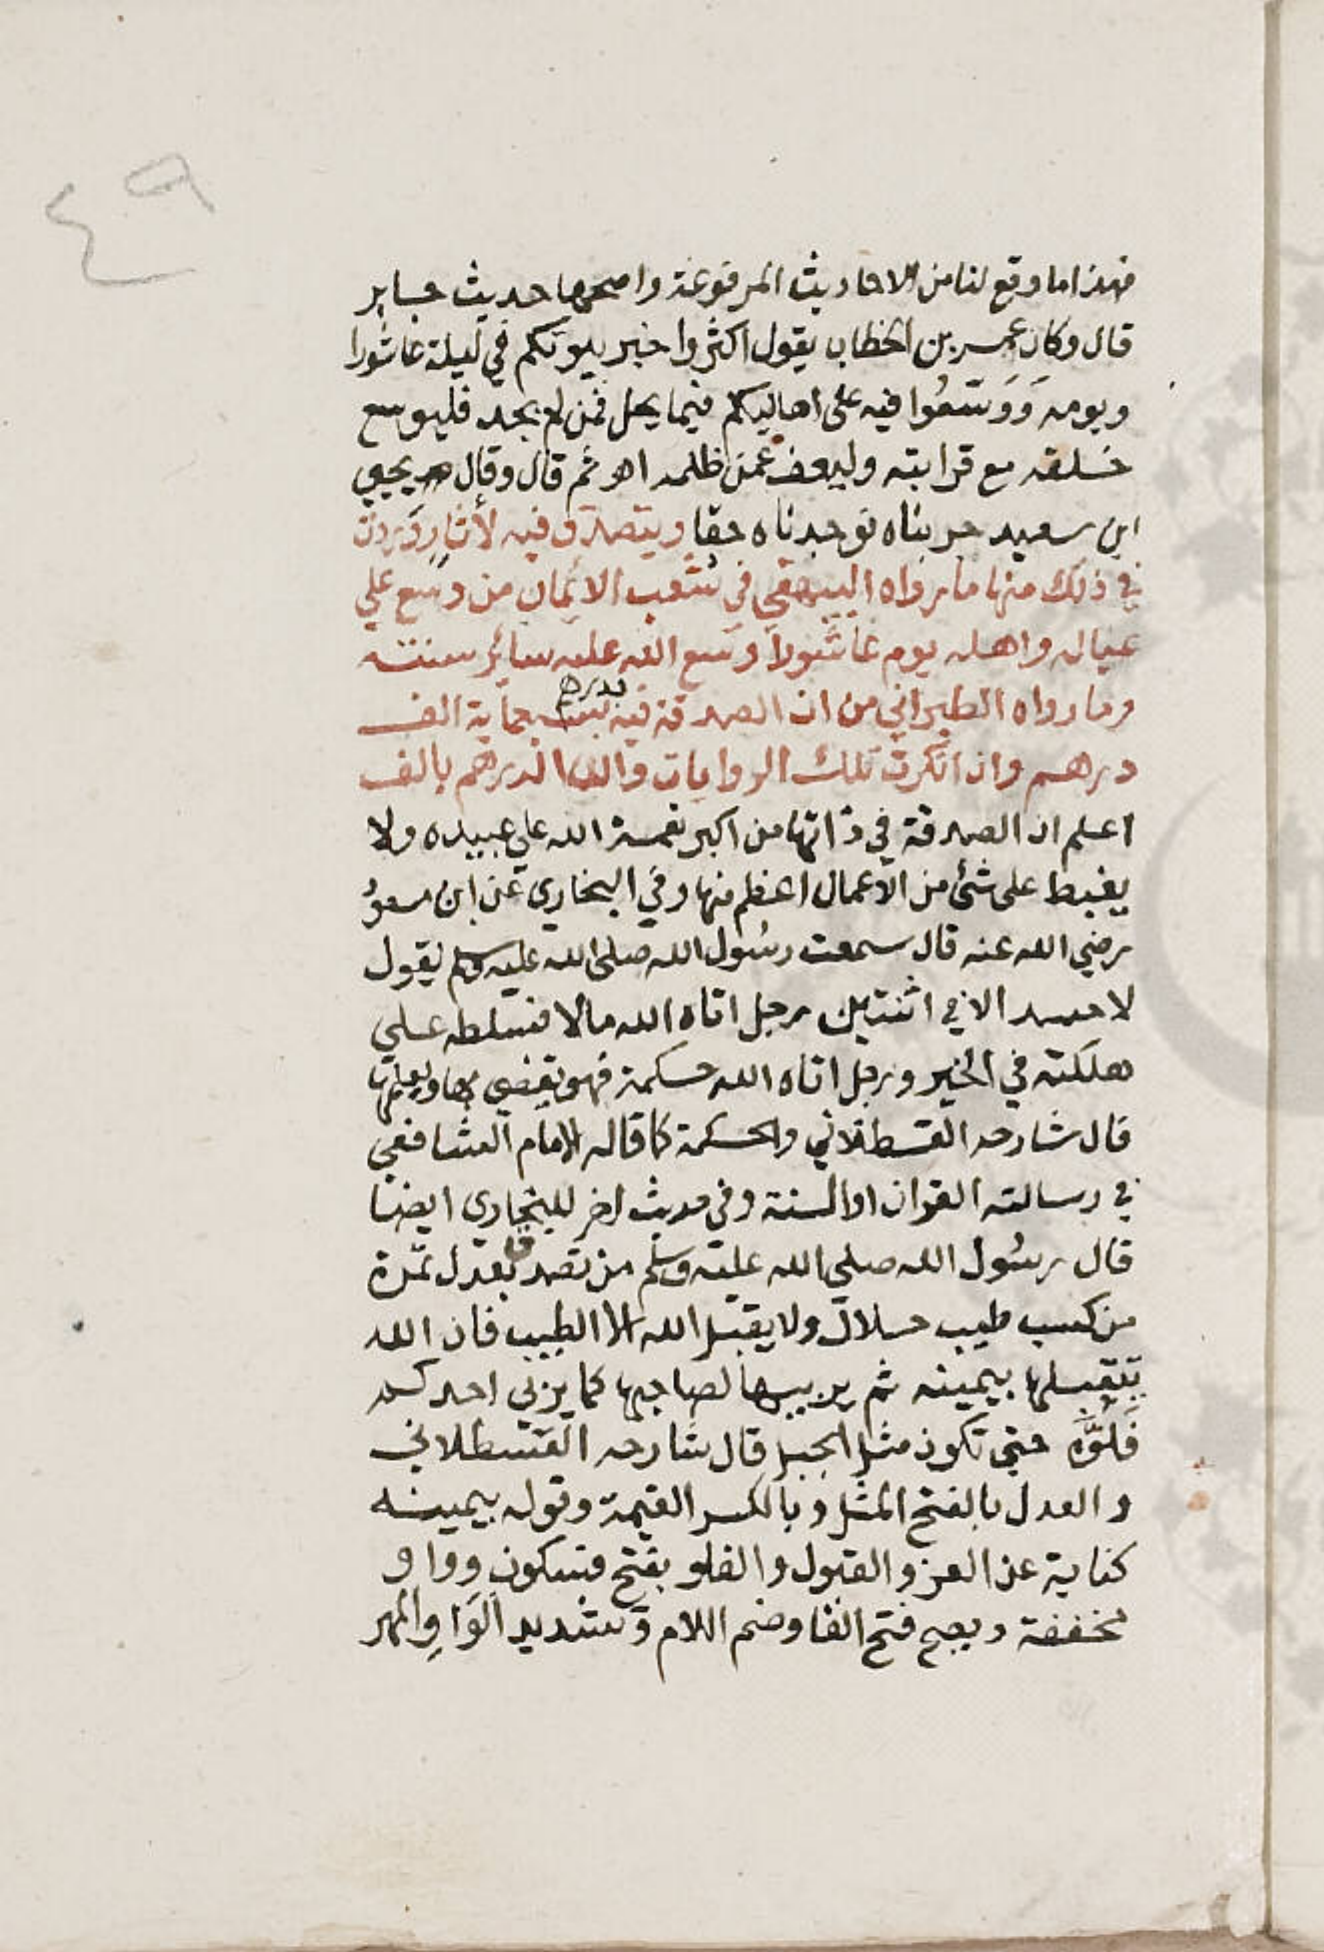 ٤٩
فهذا ما وقع لنا من الاحاديث المرفوعة واصحها حديث جابر
قال وكان عمر بن الخطاب يقول اكثروا خير بيوتكم في ليلة عاشورا
ويومه وَوَسّعُوا فيه على اهاليكم فيما يحل فمن لم يجد فليوسع
خلقه مع قرابته وليعف عمن ظلمه اهـ ثم قال وقال يحيى
ابن سعيد جربناه فوجدناه حقا ويتصدق فيه لأثار وَردت
في ذلك منها ما رواه البيهقي في شعب الايمان من وسع علي
عياله واهله يوم عاشورا وسع الله عليه سائر سنته
وما رواه الطبراني من ان الصدقة فيه بدرهم بسبعماية الف
درهم وان انكرت تلك الروايات الدرهم بالف
اعلم ان الصدقة في ذاتها من اكبر نعمة الله علي عبيده ولا
يغبط على شئ من الاعمال اعظم منها وفي البخاري عن ابن مسعود
رضي الله عنه قال سمعت رسول الله صلى الله عليه وسلم يقول
لا حسد الا في اثنتين رجل اتاه الله مالا فسلطه علي
هلكته في الخير ورجل اتاه الله حكمة فهو يقضي بها ويعلمها
قال شارحه القسطلاني والحكمة كما قاله الامام الشافعي
في رسالته القران او السنة وفي حديث اخر للبخاري ايضا
قال رسول الله صلي الله عليه وسلم من تصدق بعدل تمرة
من كسب طيب حلال ولا يقبل الله الا الطيب فان الله
يتقبلها بيمينه ثم يربيها لصاحبها كما يربي احدكم
فَلُوَّه حتي تكون مثل الجبل قال شارحه القسطلاني
والعدل بالفتح المثل وبالكسر القيمة وقوله بيمينه
كناية عن العز والقبول والفلو بفتح فسكون وواو
مخففة ويصح فتح الفا وضم اللام وتشديد الواو المهر